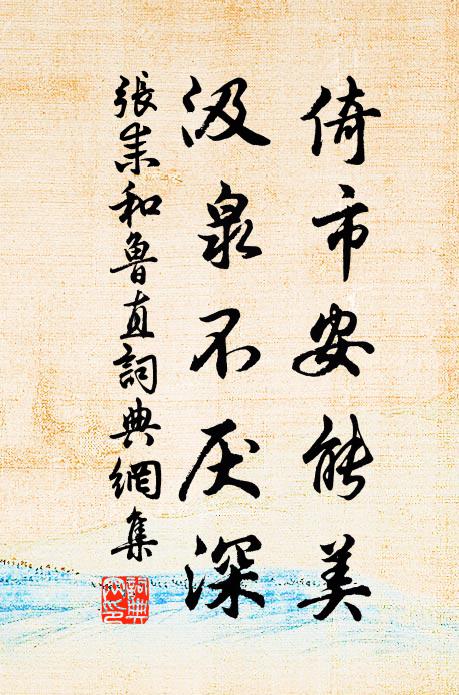 倚市安能美
汲泉不厌深
張耒和魯直詞典網集